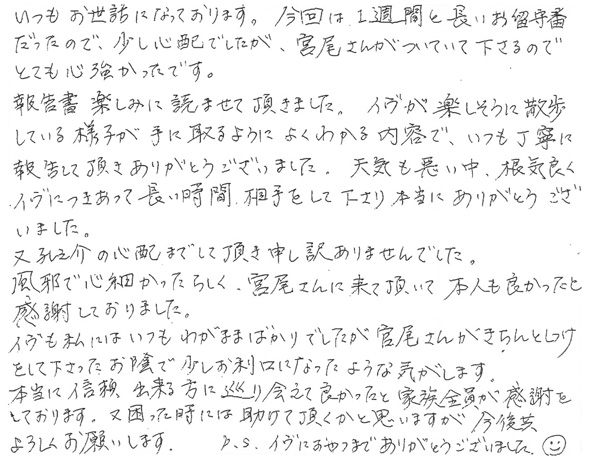 いつもお世話になっております。今回は1週間と長いお留守番
だったので、少し心配でしたが、宮尾さんがついていて下さるので
とても心強かったです。
報告書 楽しみに読ませて頂きました。イヴが楽しそうに散歩
している様子が手に取るようによくわかる内容で、いつも丁寧に
報告して頂きありがとうございました。天気も悪い中、根気良く
イヴにつきあって長い時間、相手をして下さり本当にありがとうござ
いました。
又 介の心配までして頂き申し訳ありませんでした。
風邪で心細かったらしく、宮尾さんに来て頂いて本人も良かったと
感謝しておりました。
イヴも私にはいつもわがままばかりでしたが宮尾さんがきちんとしつけ
をして下さったお陰で少しお利口になったような気がします。
本当に信頼出来る方に巡り会えて良かったと家族全員が感謝を
しております。又困った時には助けて頂くかと思いますが今後共
よろしくお願いします。 P.S. イヴにおやつまでありがとうございました。